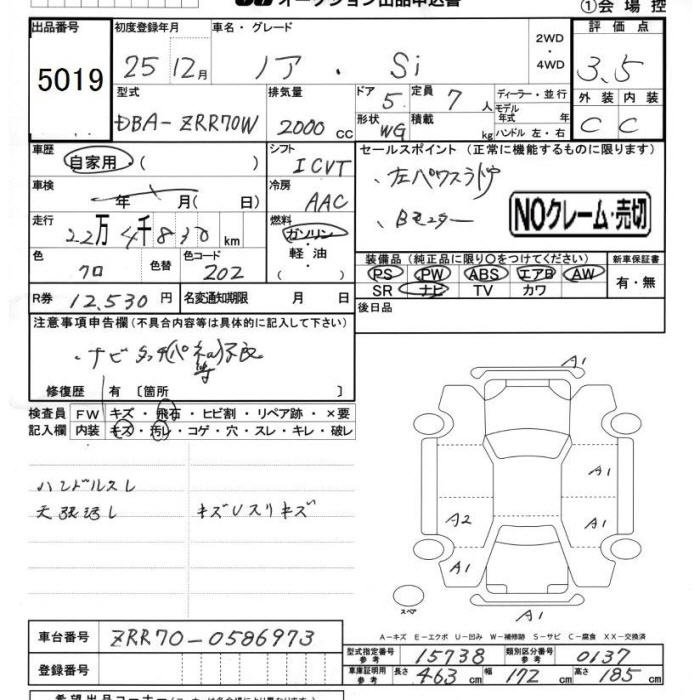 オークション出品申込書
①会場控
出品番号 5019
初度登録年月 25 12月
車名・グレード ノア・Si
2WD・4WD
評価点 3.5
外装 C 内装 C
型式 DBA-ZRR70W
排気量 2000cc
ドア 5 定員 7人
形状 WG 積載 kg
ディーラー・並行
モデル年式 年
ハンドル 左・右
車歴 自家用・( )
シフト ICVT
車検 年 月( 日)
冷房 AAC
走行 22万4千830km
燃料 ガソリン・軽油( )
色 クロ 色替 色コード 202
R券 12,530円 名変通知期限 月 日
セールスポイント(正常に機能するものに限ります)
、左パワスラドア
、Bモニター
NOクレーム・売切
装備品(純正品に限り○をつけてください) 新車保証書
PS PW ABS エアB AW 有・無
SR ナビ TV カワ
後日品
注意事項申告欄(不具合内容等は具体的に記入して下さい)
・ナビタッチ(パネル)等不良
修復歴 有〔箇所 〕
検査員 FW キズ・飛石・ヒビ割・リペア跡・×要
記入欄 内装 キズ・汚レ・コゲ・穴・スレ・キレ・破レ
ハンドルスレ
天張汚レ キズUスリキズ
A1
A1
A2 A1
A1 A1
A1
スペア
A-キズ E-エクボ U-凹み W-補修跡 S-サビ C-腐食 XX-交換済
車台番号 ZRR70-0586973
型式指定番号参考 15738 類別区分番号参考 0137
登録番号
車庫証明用参考 長さ 463cm 幅 172cm 高さ 185cm